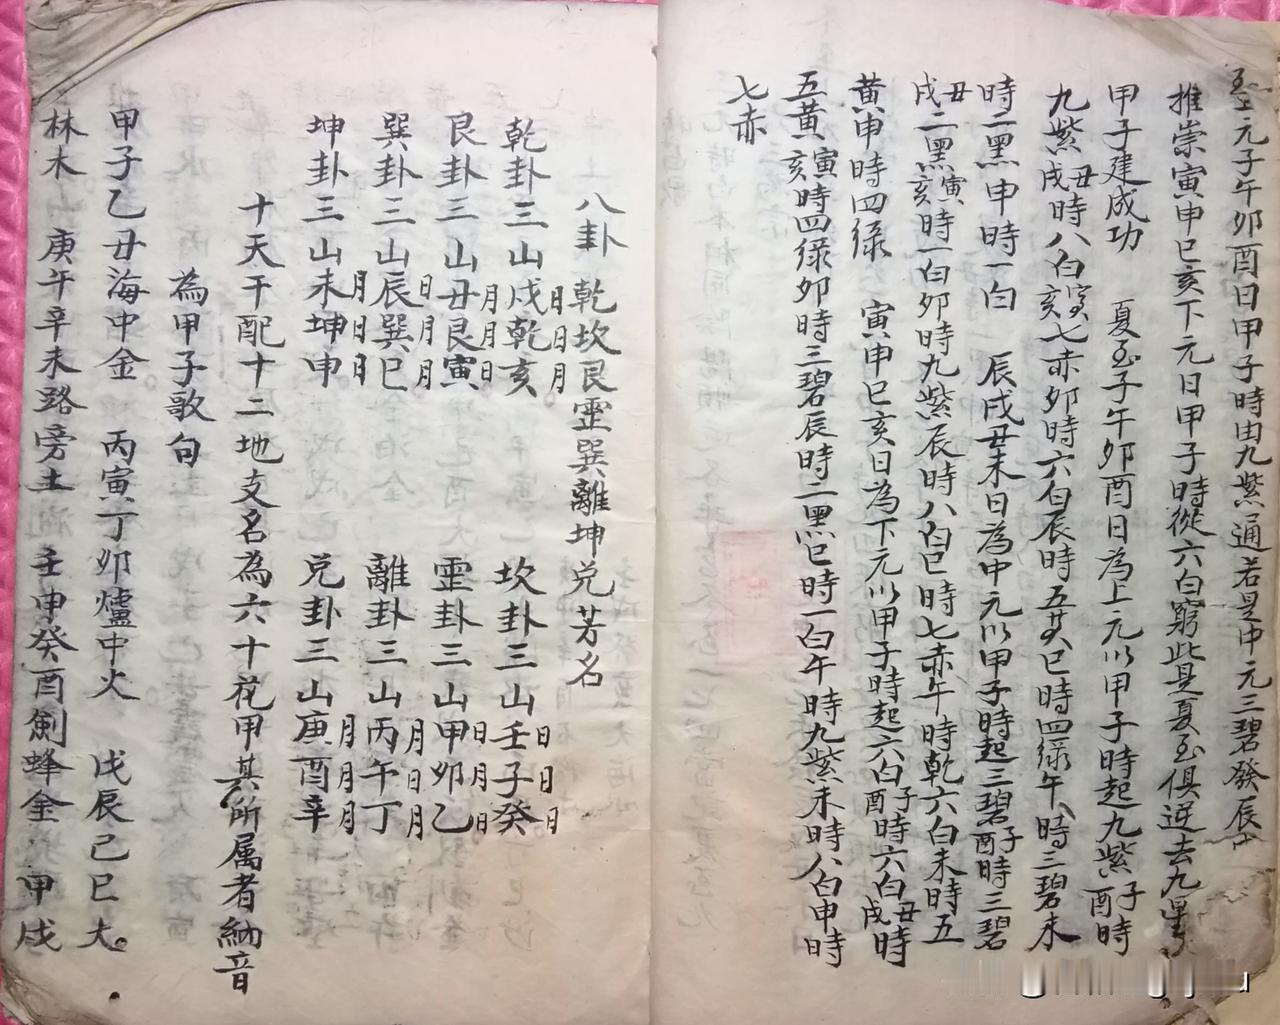 至上元子午卯酉日甲子時由九紫通若是中元三碧發辰戌
推崇寅申巳亥下元日甲子時從六白窮此是夏至俱逆去九星
甲子建成功 夏至子午卯酉日為上元以甲子時起九紫子酉時
九紫丑戌時八白寅亥七赤卯時六白辰時五黃巳時四綠午時三碧未
時二黑申時一白 辰戌丑未日為中元以甲子時起三碧子酉時三碧
丑戌二黑寅亥時一白卯時九紫辰時八白巳時七赤午時乾六白未時五
黃申時四綠 寅申巳亥日為下元以甲子時起六白子酉時六白丑戌時
五黃寅亥時四綠卯時三碧辰時二黑巳時一白午時九紫未時八白申時
七赤
八卦 乾坎艮震巽離坤兌芳名
乾卦三山戌乾亥 日日月 坎卦三山壬子癸 日日月
艮卦三山丑艮寅 月月日 震卦三山甲卯乙 日月日
巽卦三山辰巽巳 日月月 離卦三山丙午丁 月日月
坤卦三山未坤申 月日日 兌卦三山庚酉辛 月月月
十天干配十二地支名為六十花甲其所属者納音
為甲子歌句
甲子乙丑海中金 丙寅丁卯爐中火 戊辰己巳大
林木 庚午辛未路旁土 壬申癸酉劍蜂金 甲戌